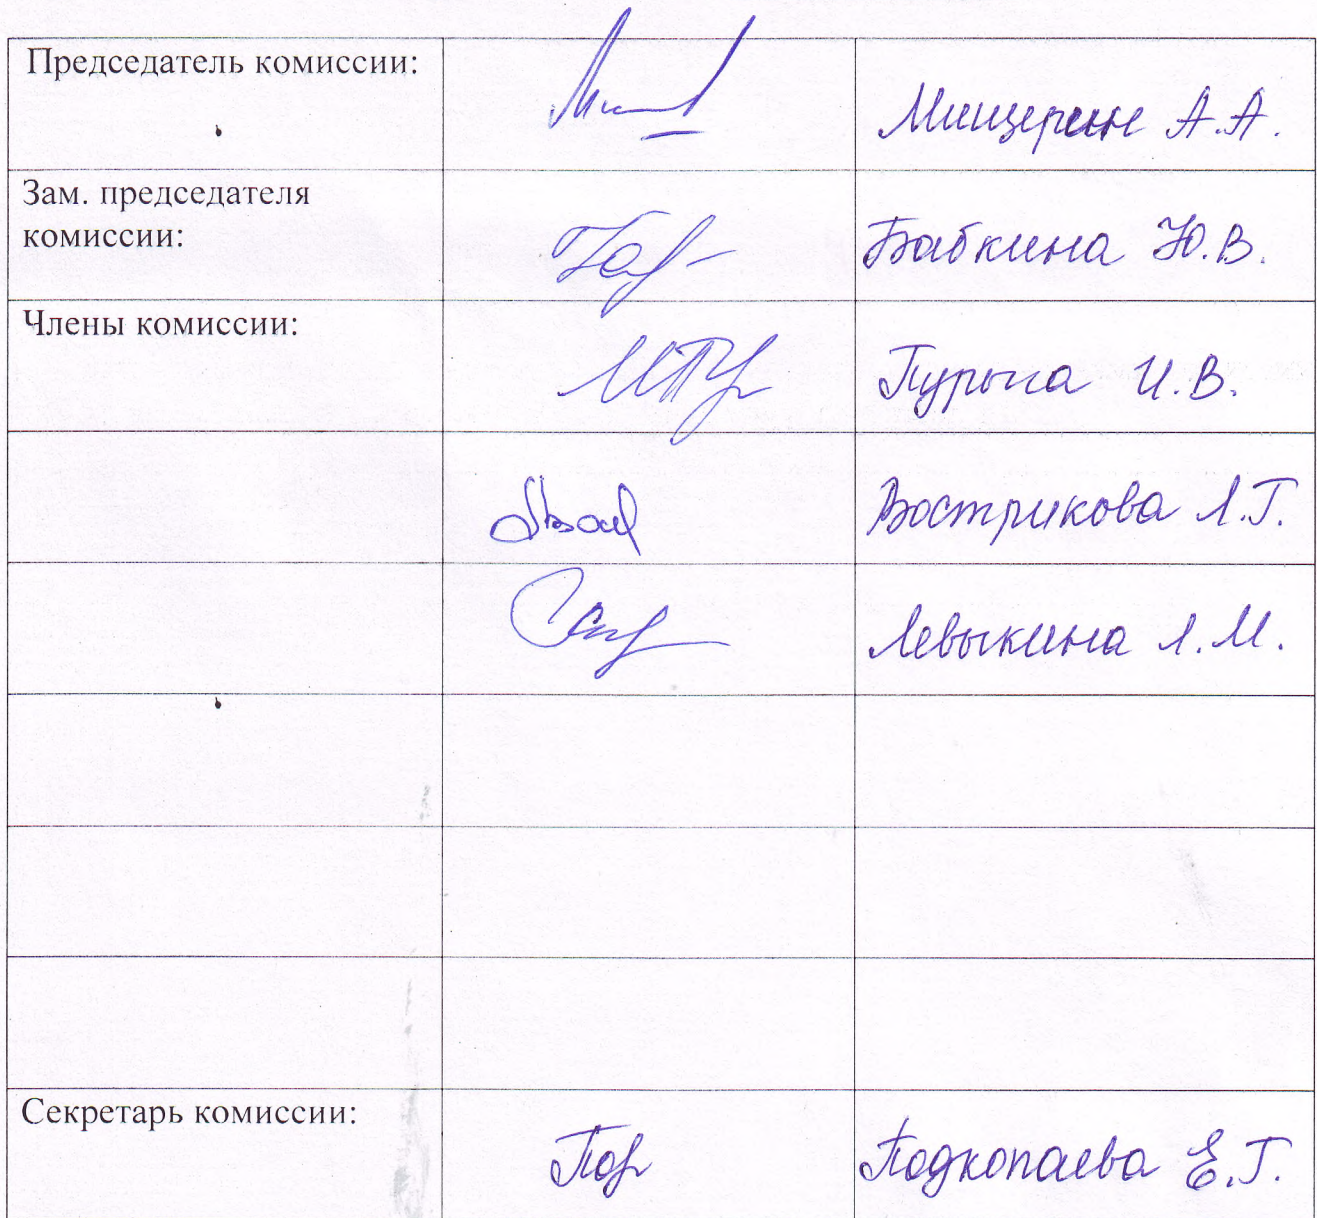 Председатель комиссии:
Мищерин А.А.
Зам. председателя
комиссии:
Бабкина Ю.В.
Члены комиссии:
Пурыга И.В.
Вострикова Л.Г.
Левыкина Л.М.
Секретарь комиссии:
Подкопаева Е.Г.